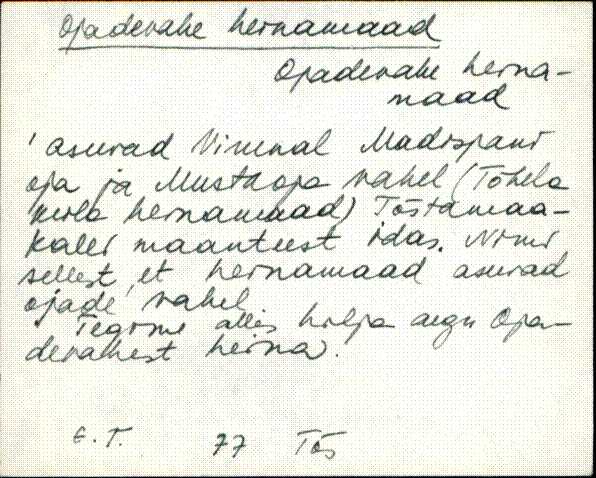 Ojadevahe hernamaad
Ojadevahe herna-
maad
' asuvad Virunal Madispani
oja ja Mustaoja vahel (Tõhela
küla hernamaad) Tõstamaa-
Kalli maanteest idas. Nimi
sellest, et hernamaad asuvad
ojade vahel.
Tegime alles hilja aegu Oja-
devahest heina.
E. T. 77 Tõs